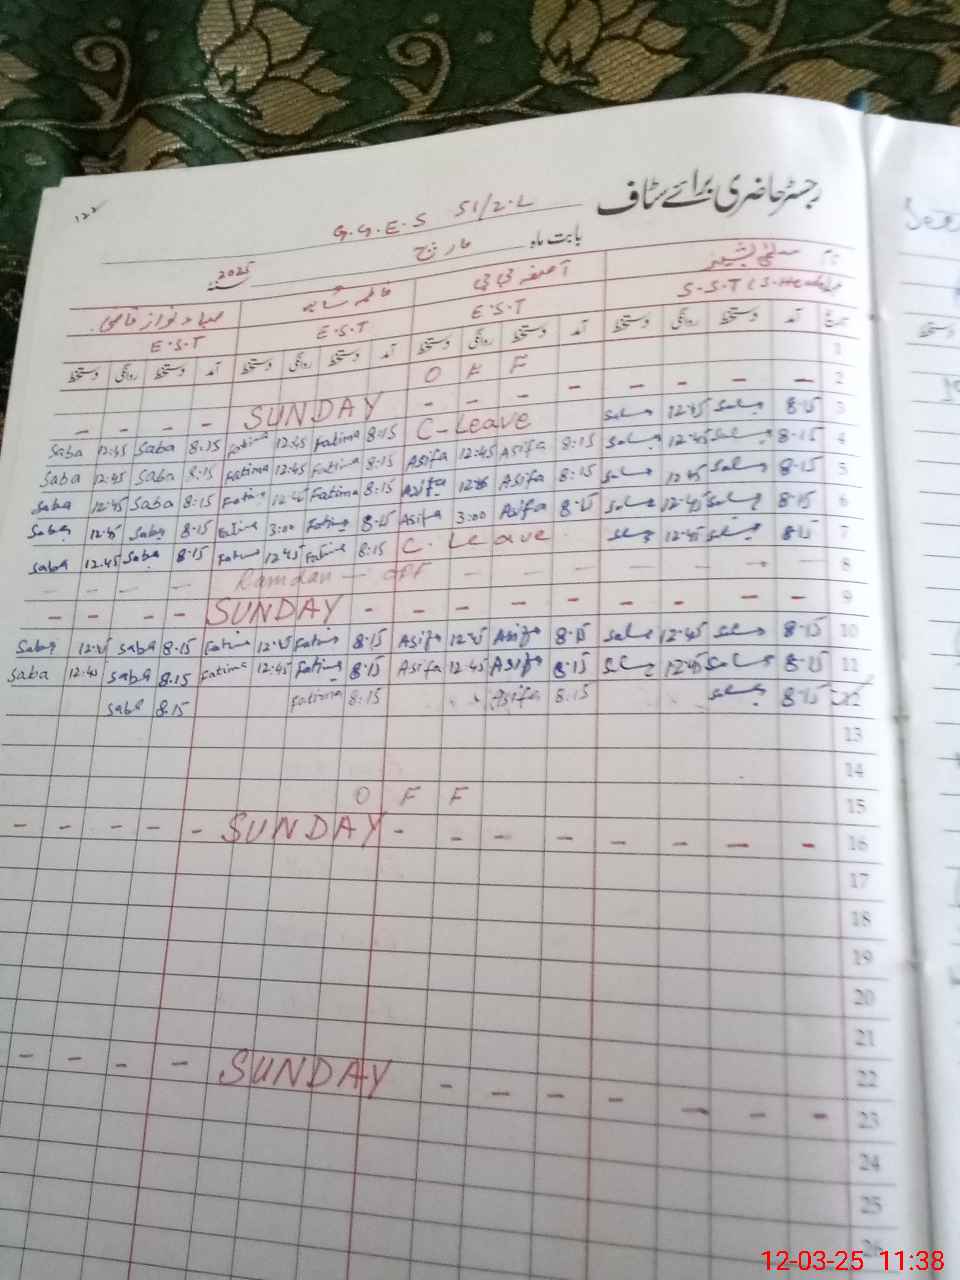 رجسٹر حاضری برائے سٹاف
122
G.G.E.S 51/2.L
بابت ماہ مارچ 2025
نام سلمیٰ بشیر آصفہ بی بی فاطمہ
S.S.T (S.Head) E.S.T E.S.T E.S.T
تاریخ آمد دستخط روانگی دستخط آمد دستخط روانگی دستخط آمد دستخط روانگی دستخط آمد دستخط روانگی دستخط
1 O F F
2 - - - - - - - SUNDAY - - - -
3 8:15 12:45 C-Leave 8:15 Fatima 12:45 Fatima 8:15 Saba 12:45 Saba
4 8:15 12:45 8:15 Asifa 12:45 Asifa 8:15 Fatima 12:45 Fatima 8:15 Saba 12:45 Saba
5 8:15 12:45 8:15 Asifa 12:45 Asifa 8:15 Fatima 12:45 Fatima 8:15 Saba 12:45 Saba
6 8:15 12:45 8:15 Asifa 3:00 Asifa 8:15 Fatima 3:00 Fatima 8:15 Saba 12:45 Saba
7 8:15 12:45 C. Leave 8:15 Fatima 12:45 Fatima 8:15 Saba 12:45 Saba
8 - - - - - - - Ramdan - OFF - - - -
9 - - - - - - - - SUNDAY - - - -
10 8:15 12:45 8:15 Asifa 12:45 Asifa 8:15 Fatima 12:45 Fatima 8:15 Saba 12:45 Saba
11 8:15 12:45 8:15 Asifa 12:45 Asifa 8:15 Fatima 12:45 Fatima 8:15 Saba 12:45 Saba
12 8:15 8:15 Asifa 8:15 Fatima 8:15 Saba
13
14
15 O F F
16 - - - - - - - - SUNDAY - - - - -
17
18
19
20
21
22
23 - - - - - - - SUNDAY - - - -
24
25
26
12-03-25 11:38